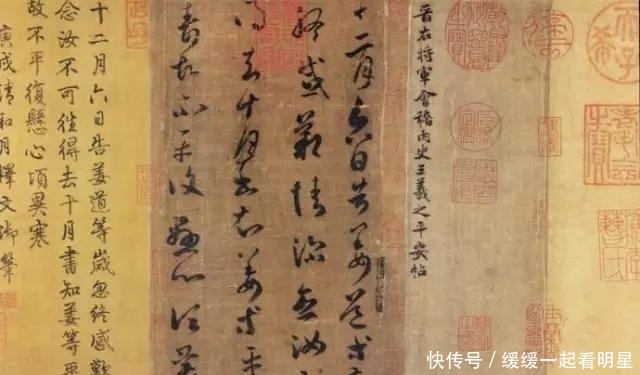 晉右將軍會稽內史王羲之平安帖
十二月六日告姜道等
終感歎情深念汝
得去十月書知姜等平
壽故不平復懸心頃異
十二月六日告姜道等歲忽終感歎
念汝不可徃得去十月書知姜等平
故不平復懸心頃異寒
庚戌清和月釋文御筆
快传号／缓缓一起看明星